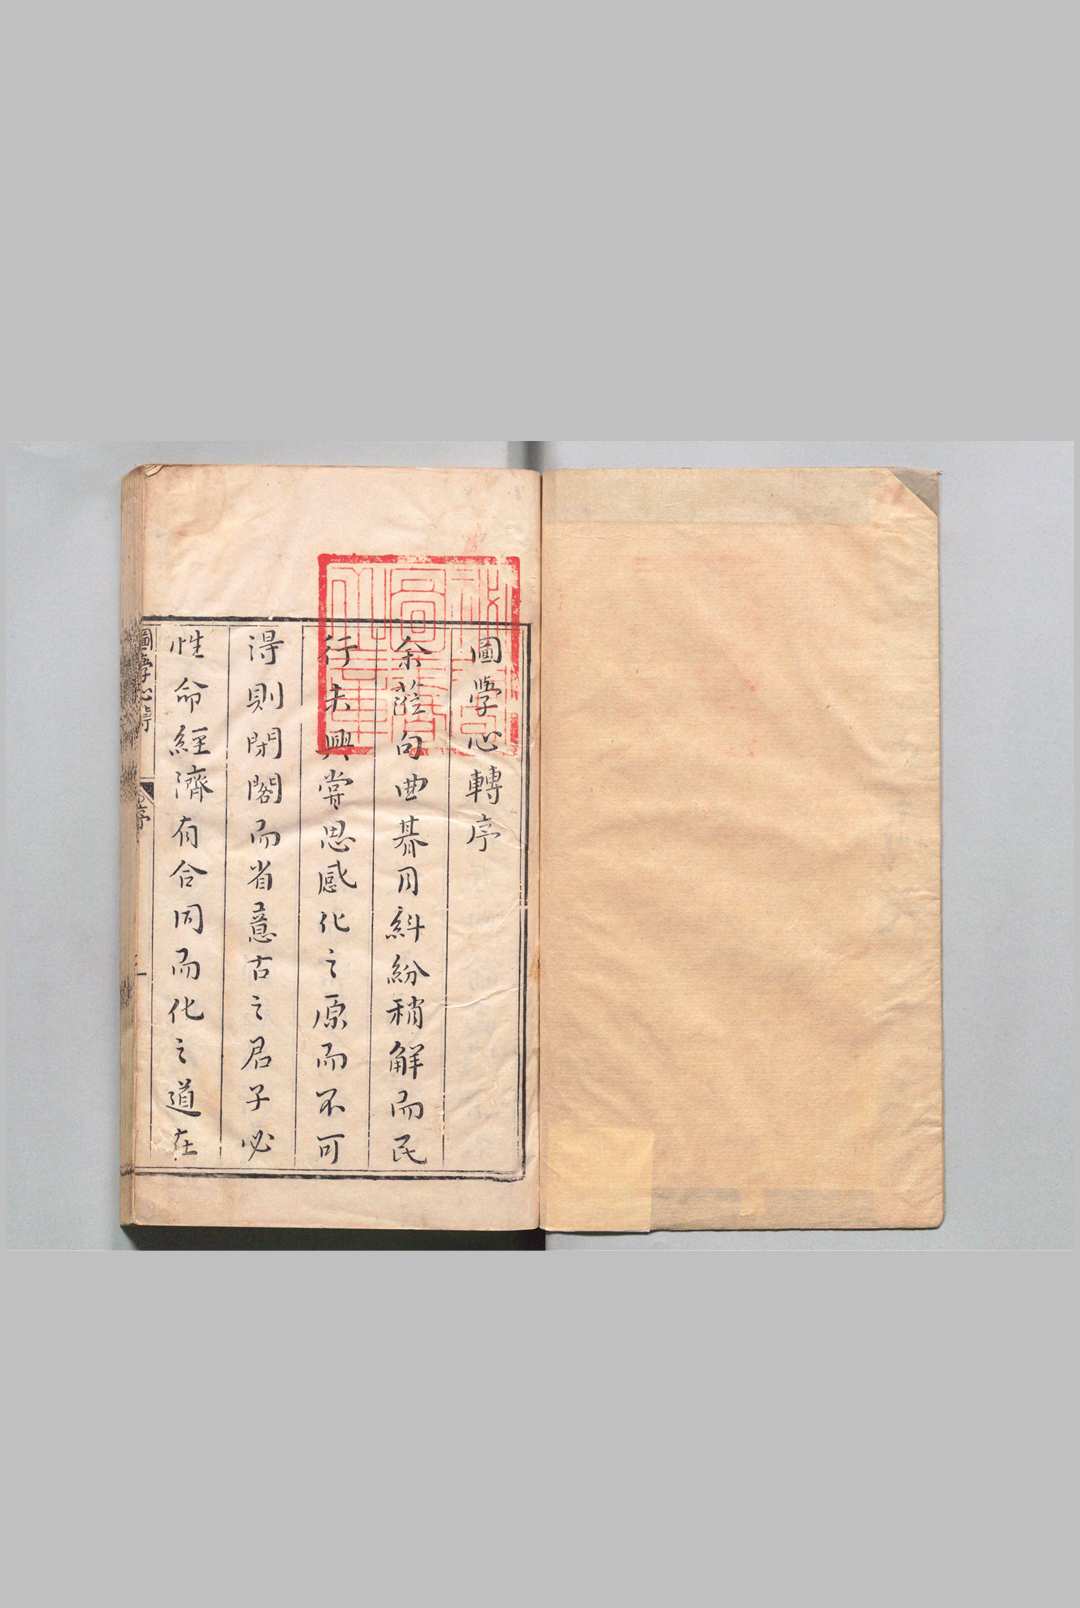 圖學心轉序
余蒞句曲朞月糾紛稍解而民
行未興嘗思感化之原而不可
得則閉閣而省意古之君子必
性命經濟有合同而化之道在
圖學心轉
序